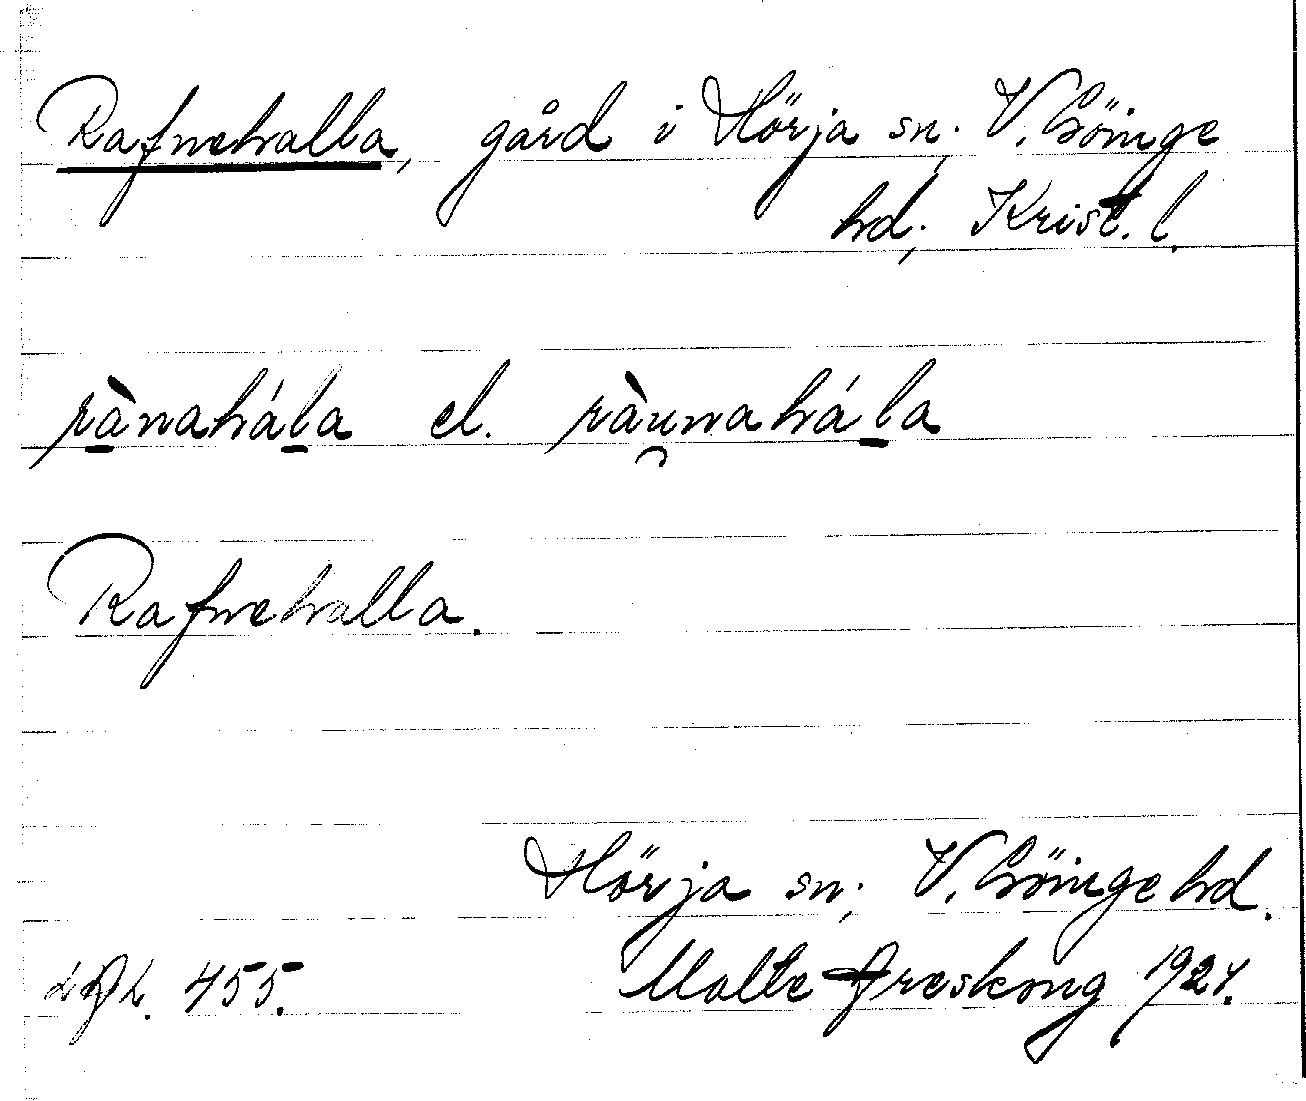 Rafnehalla, gård i Hörja sn. V. Göinge
hd, Krist. l.
rànahála el. ràu̯nahála
Rafnehalla.
Hörja sn, V. Göinge hd.
455. Malte 192